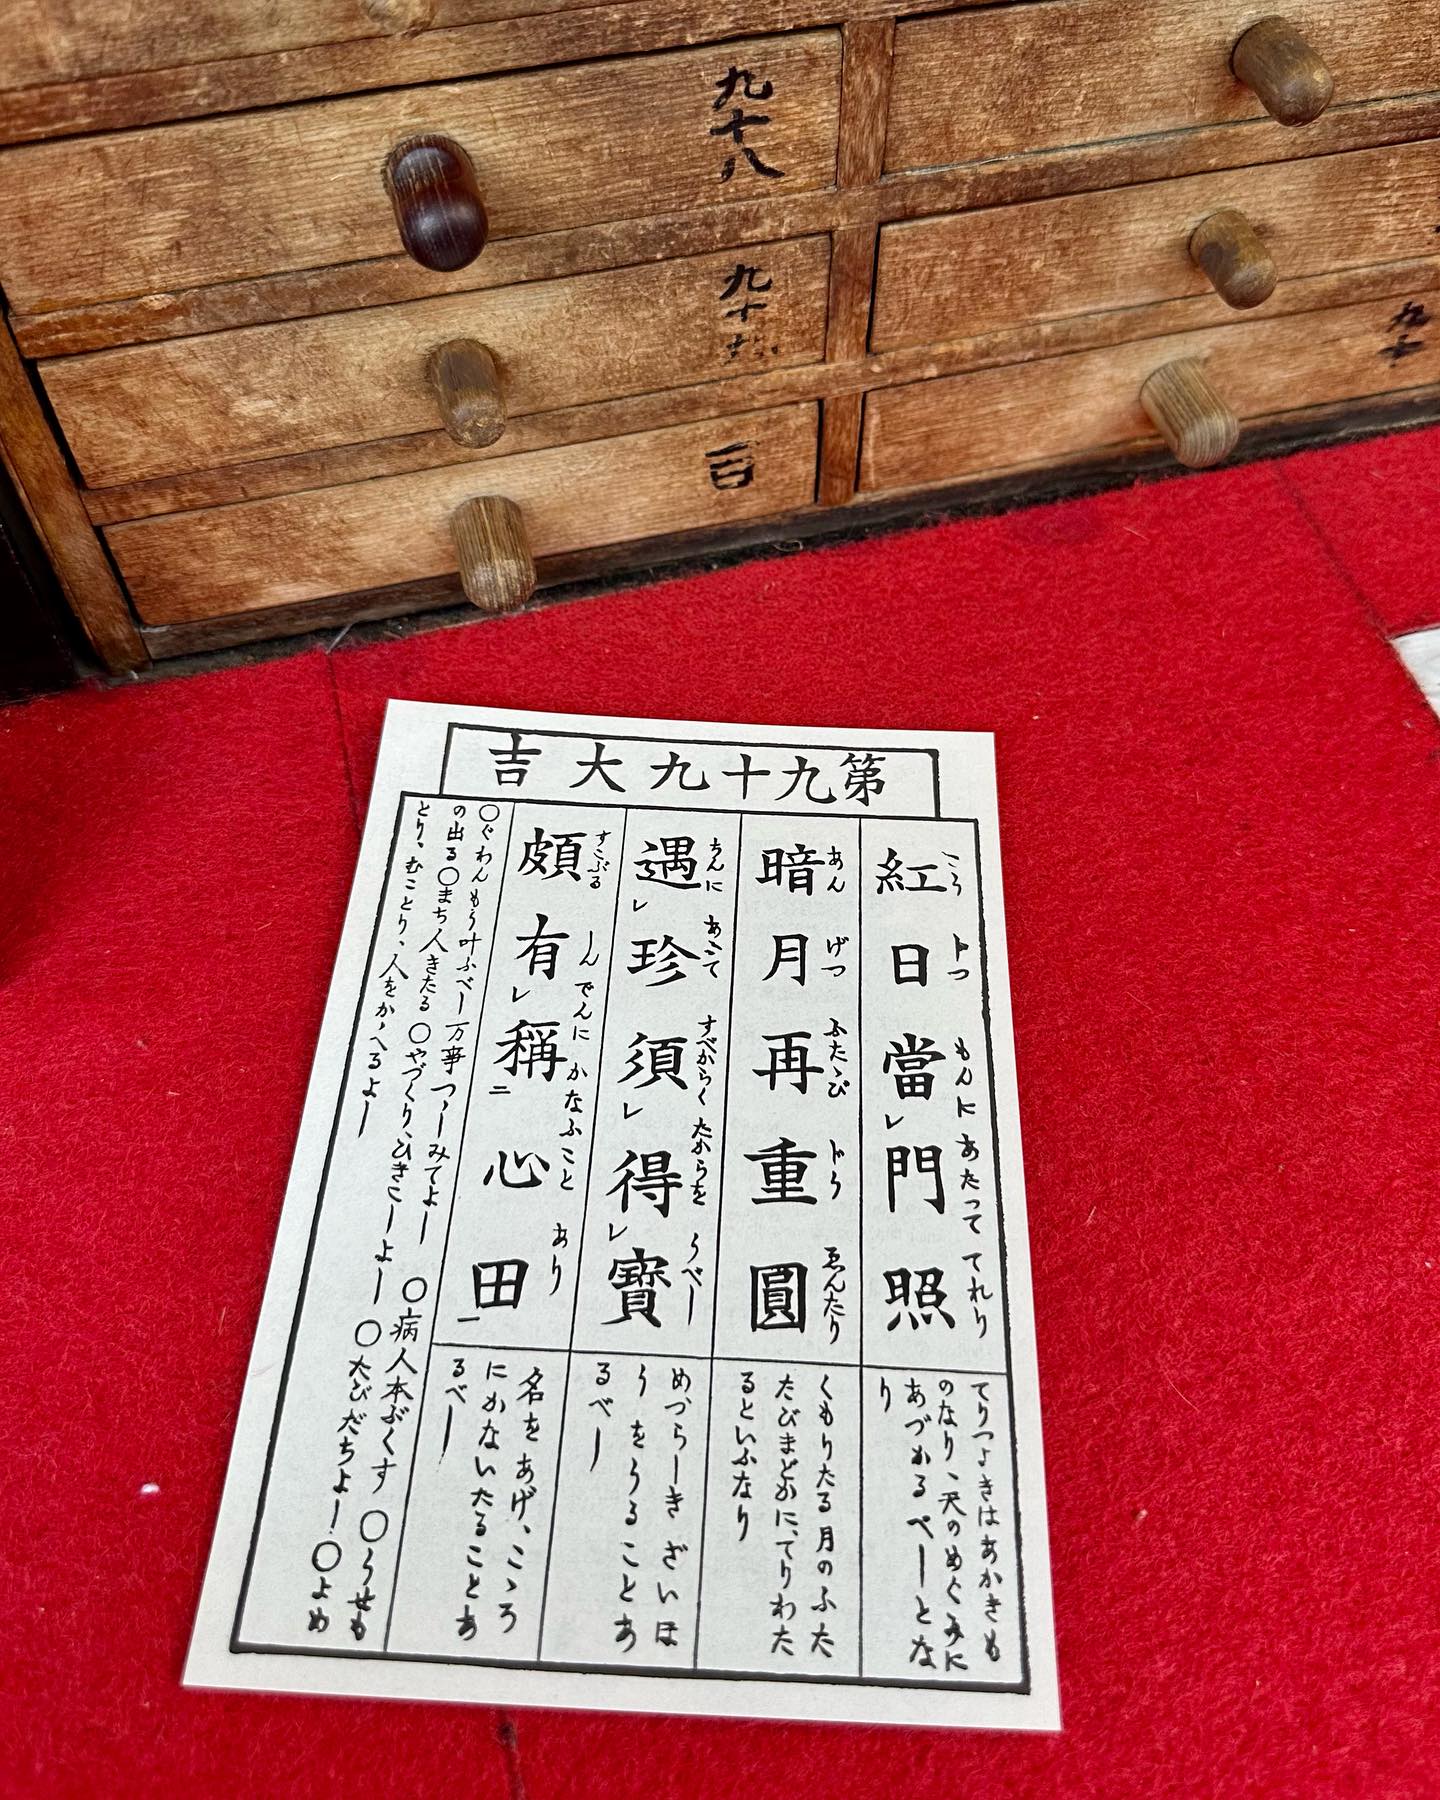 九十八
九十
百
九十
第九十九大吉
紅日當門照
こう じつ もんに あたつて てれり
暗月再重圓
あん げつ ふたゝび ぢう ゑんたり
遇珍須得寶
ちんに あふて すべからく たからを うべし
頗有稱心田
すこぶる しん でんに かなふこと あり
てりつよきはあかきも
のなり、天のめぐみに
あづかるべしとな
り
くもりたる月のふた
たびまどかに、てりわた
るといふなり
めづらしき ざいほ
う をうることあ
るべし
名をあげ、こゝろ
にかないたることあ
るべし
〇ぐわんもう叶ふべし 万事つゝしみてよし 〇病人本ぶくす 〇うせも
の出る〇まち人きたる 〇やづくり、ひきこしよし 〇たびだちよし 〇よめ
とり、むことり、人をかゝへるよし